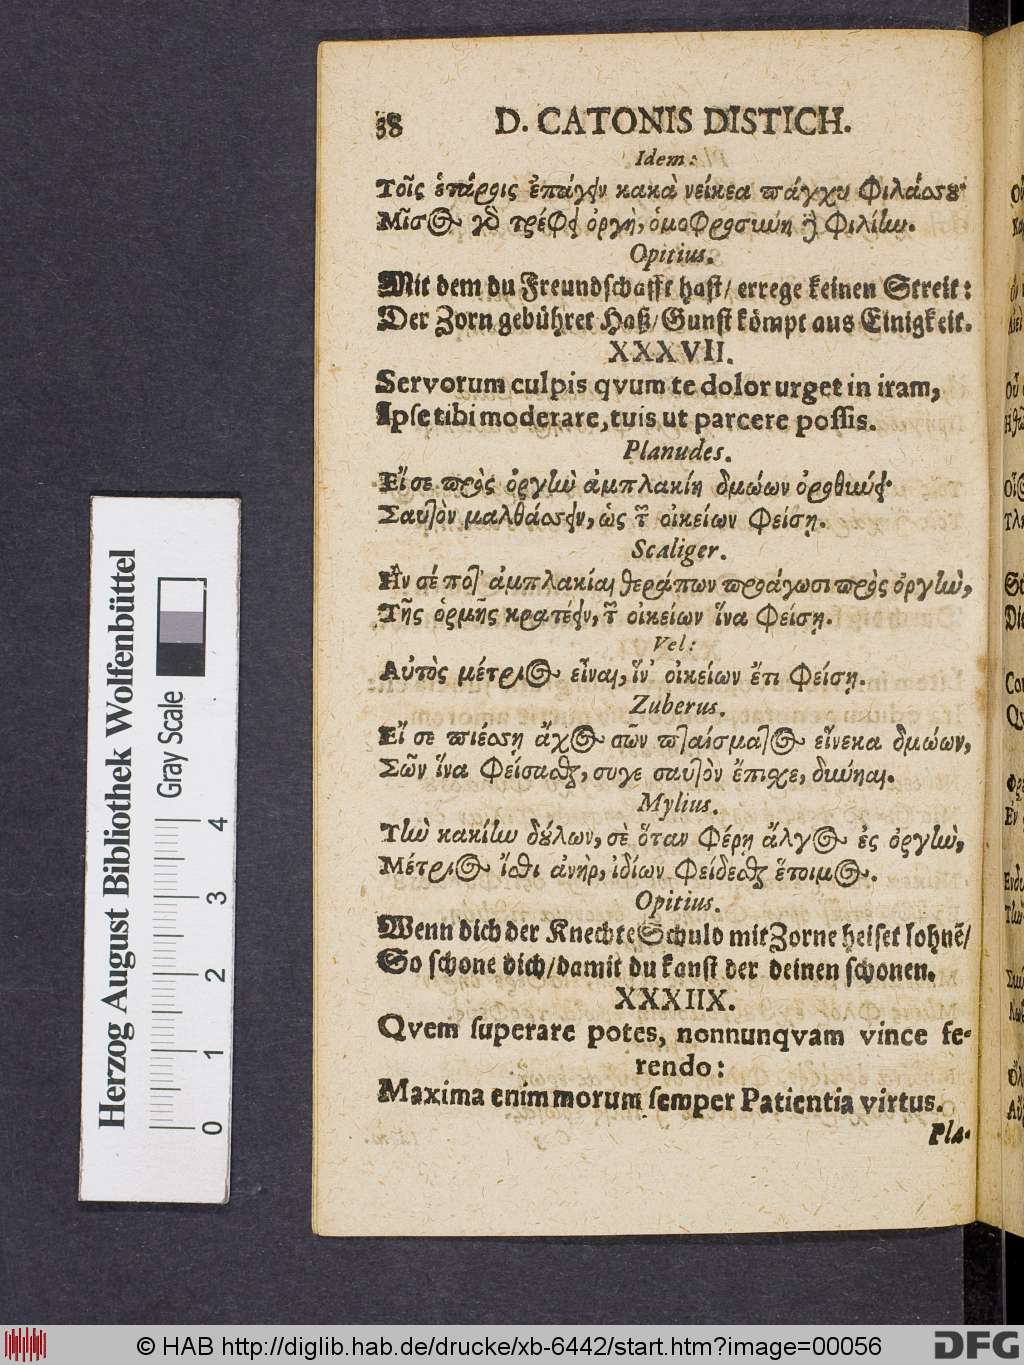 38 D. CATONIS DISTICH.
Idem:
Τοῖς ἑτάροις ἐπάγειν κακὰ νείκεα πάγχυ φιλάσσου·
Μῖσος γὸ τρέφει ὀργὴ, ὁμοφροσύνη ἢ φιλίην.
Opitius.
Mit dem du Freundschafft hast/ errege keinen Streit:
Der Zorn gebühret Haß/ Gunst kömpt aus Einigkeit.
XXXVII.
Servorum culpis qvum te dolor urget in iram,
Ipse tibi moderare, tuis ut parcere possis.
Planudes.
Εἴ σε πρὸς ὀργὴν ἀμπλακίη δμώων ὀροθύνει·
Σαυτὸν μαλθάσσειν, ὡς τῶν οἰκείων φείσῃ.
Scaliger.
Ἢν σέ ποτ' ἀμπλακίαι θεράπων προάγωσι πρὸς ὀργὴν,
Τῆς ὁρμῆς κρατέειν, τῶν οἰκείων ἵνα φείσῃ.
Vel:
Αὐτὸς μέτριος εἶναι, ἵν' οἰκείων ἔτι φείσῃ.
Zuberus.
Εἴ σε πιέσσῃ ἄχος σῶν πταίσματος εἵνεκα δμώων,
Σῶν ἵνα φείσασθαι, συγε σαυτὸν ἔπισχε, δυνήαι.
Mylius.
Τὴν κακίην δούλων, σὲ ὅταν φέρῃ ἄλγος ἐς ὀργὴν,
Μέτριος ἴσθι ἀνὴρ, ἰδίων φείδεσθαι ἕτοιμος.
Opitius.
Wenn dich der Knechte Schuld mit Zorne heiset lohnẽ/
So schone dich/ damit du kanst der deinen schonen.
XXXIIX.
Qvem superare potes, nonnunqvam vince fe-
rendo:
Maxima enim morum semper Patientia virtus.
Pla-
Herzog August Bibliothek Wolfenbüttel
Gray Scale
0 1 2 3 4
© HAB http://diglib.hab.de/drucke/xb-6442/start.htm?image=00056
DFG